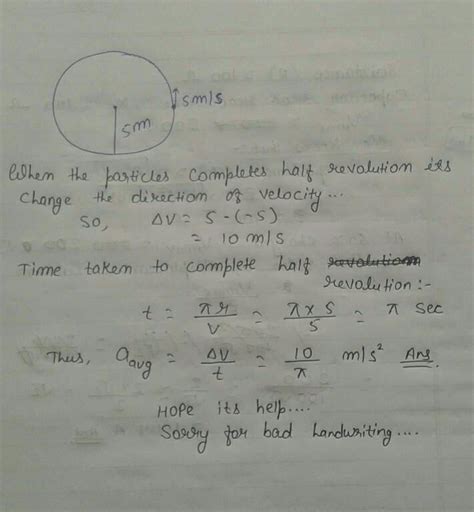 5m/s
5m
When the particles completes half revolution its
change the direction of velocity...
So, ΔV = 5-(-5)
= 10 m/s
Time taken to complete half revolution
revolution :-
t = πr/V = π×5/5 = π sec
Thus, a avg = ΔV/t = 10/π m/s² Ans.
Hope its help....
Sorry for bad handwriting....